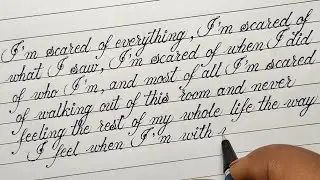 I'm scared of everything, I'm scared of
what I saw, I'm scared of when I did
of who I'm, and most of all I'm scared
of walking out of this room and never
feeling the rest of my whole life the way
I feel when I'm with